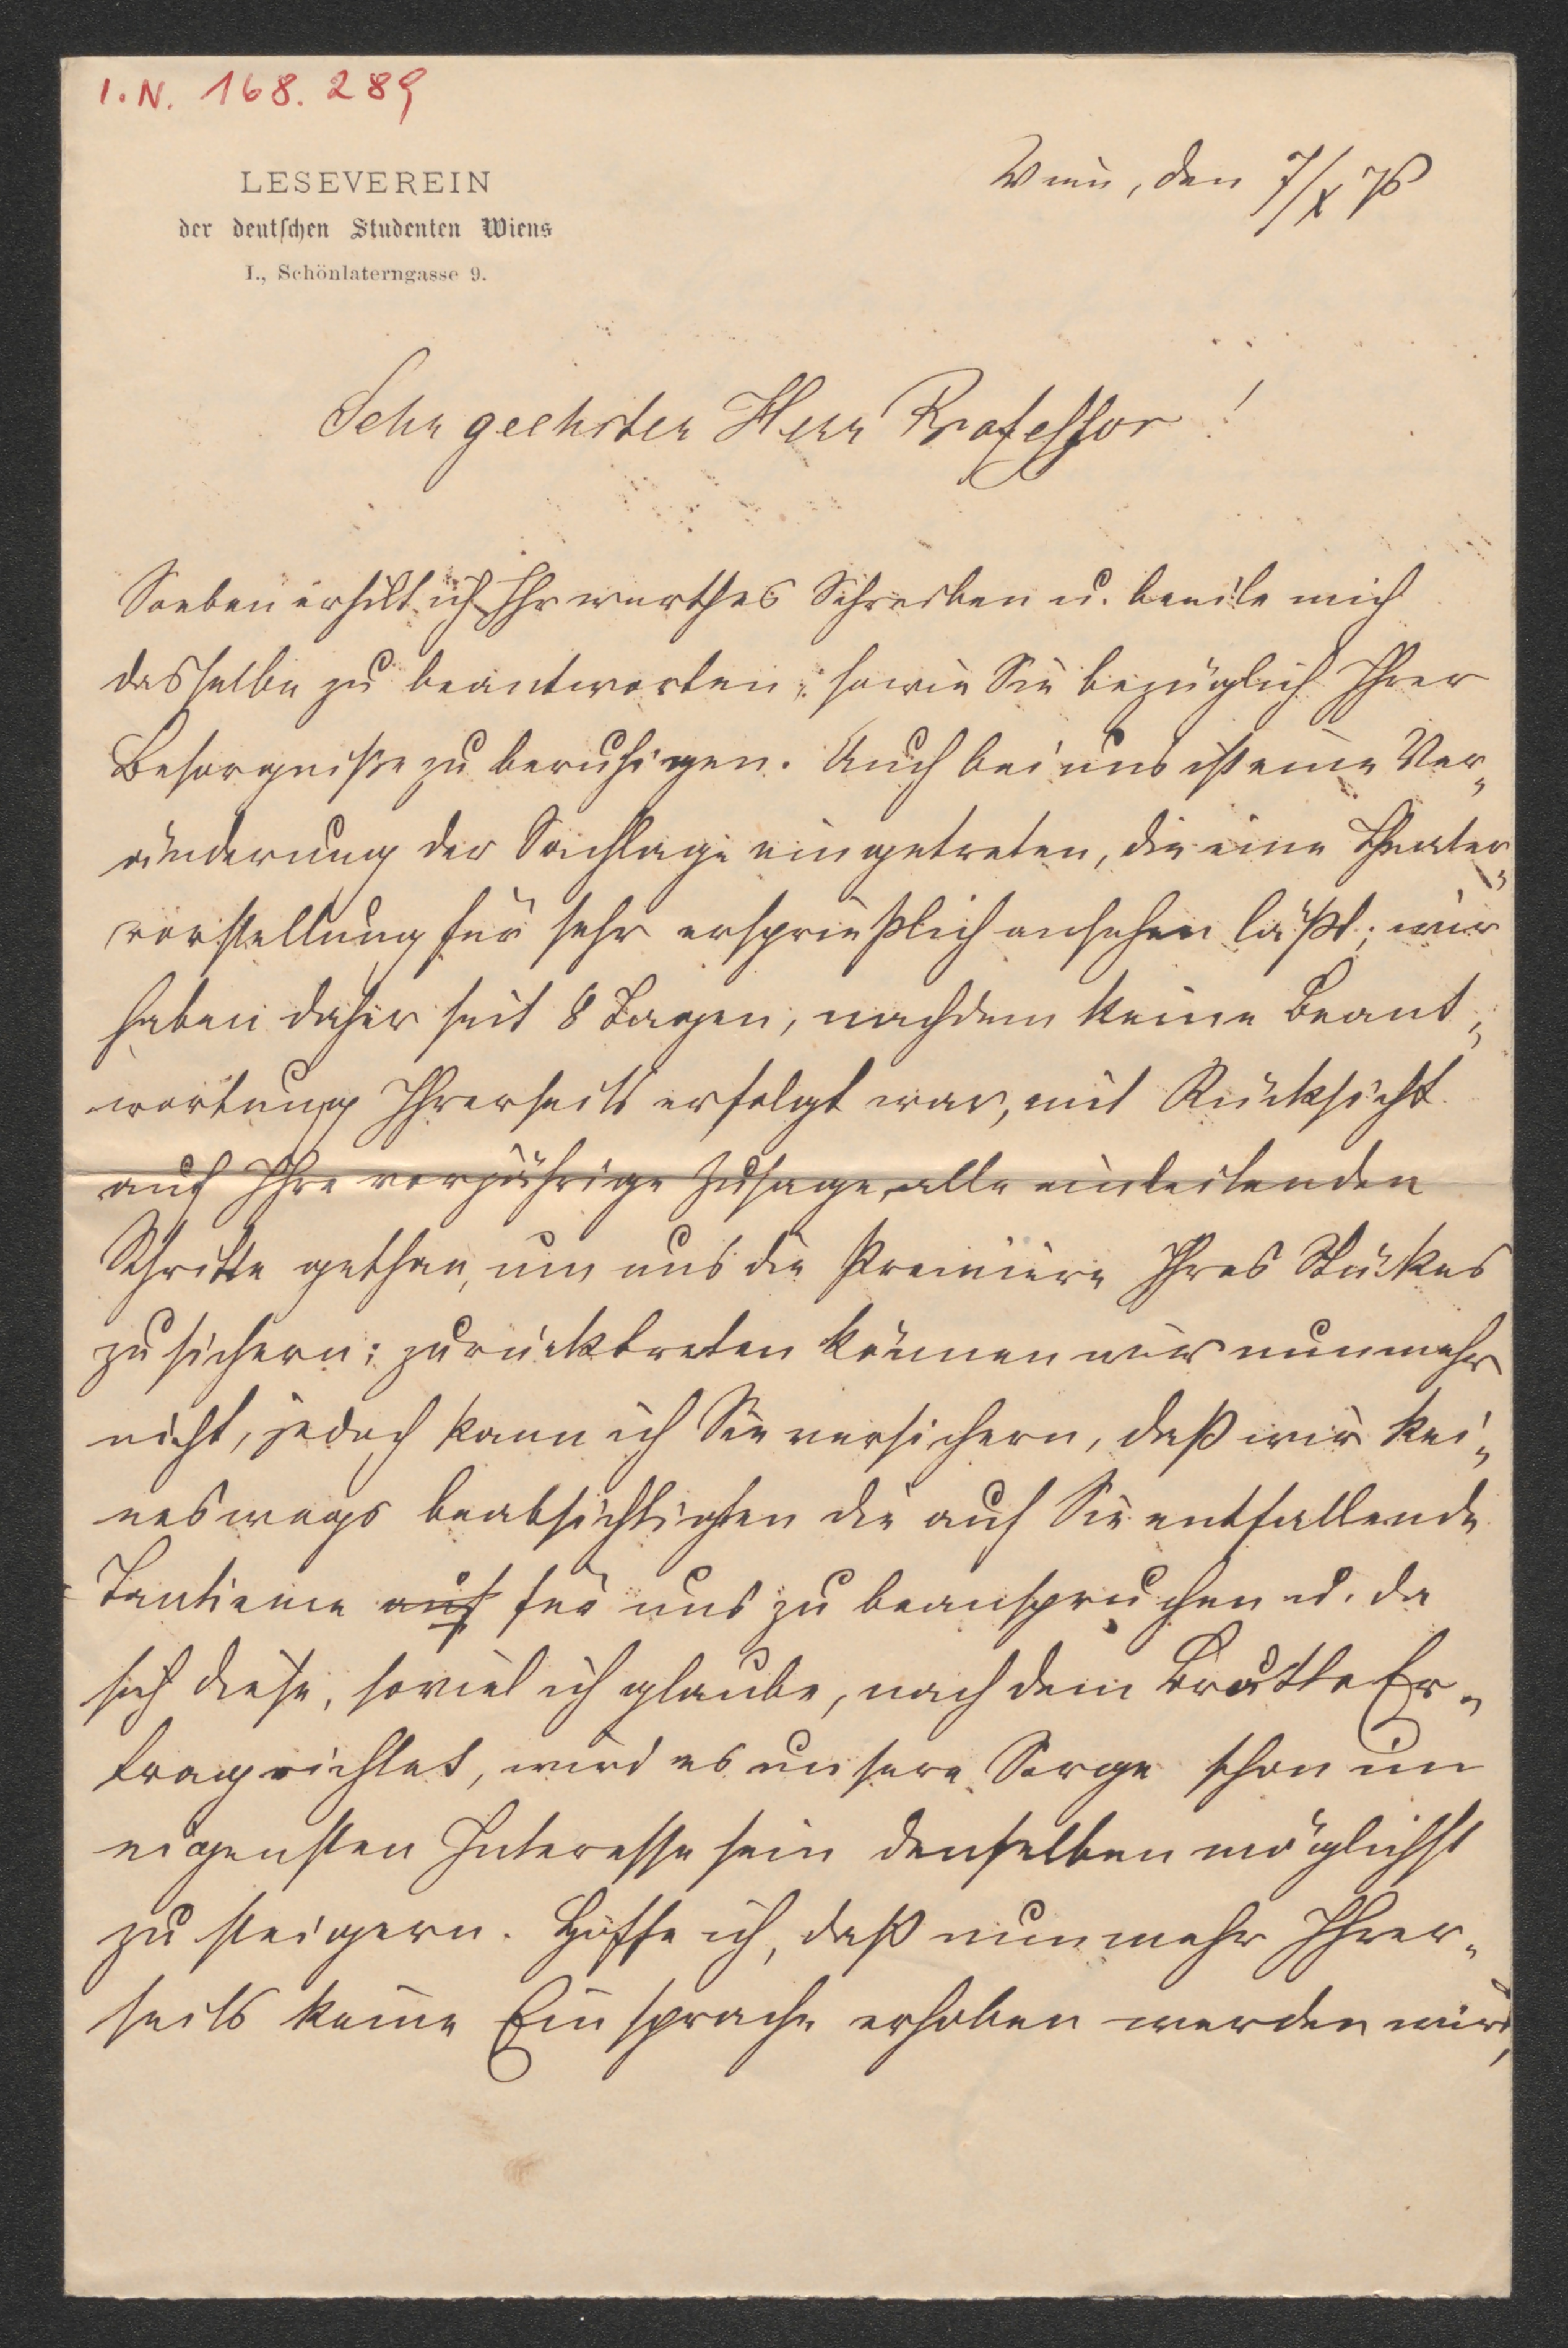 I. N. 168.289
LESEVEREIN
der deutschen Studenten Wiens
I., Schönlaterngasse 9.
Wien, den 7/X 76
Sehr geehrter Herr Professor!
Soeben erhielt ich Ihr werthes Schreiben u. beeile mich
dasselbe zu beantworten, sowie Sie bezüglich Ihrer
Besorgniße zu beruhigen. Auch bei uns ist eine Ver-
änderung der Sachlage eingetreten, die eine Theater-
vorstellung für sehr ersprießlich ansehen läßt; wir
haben daher seit 8 Tagen, nachdem keine Beant-
wortung Ihrerseits erfolgt war, mit Rücksicht
auf Ihre vorjährige Zusage, alle einleitenden
Schritte gethan, um uns die Premiere Ihres Stückes
zu sichern; zurücktreten können wir nunmehr
nicht, jedoch kann ich Sie versichern, daß wir kei-
neswegs beabsichtigten die auf Sie entfallende
Tantieme auf für uns zu beanspruchen u. da
sich diese, soviel ich glaube, nach dem Brutto Er-
trag richtet, wird es unsere Sorge schon im
eigensten Interesse sein denselben möglichst
zu steigern. Hoffe ich, daß nunmehr Ihrer-
seits keine Einsprache erhoben werden wird,